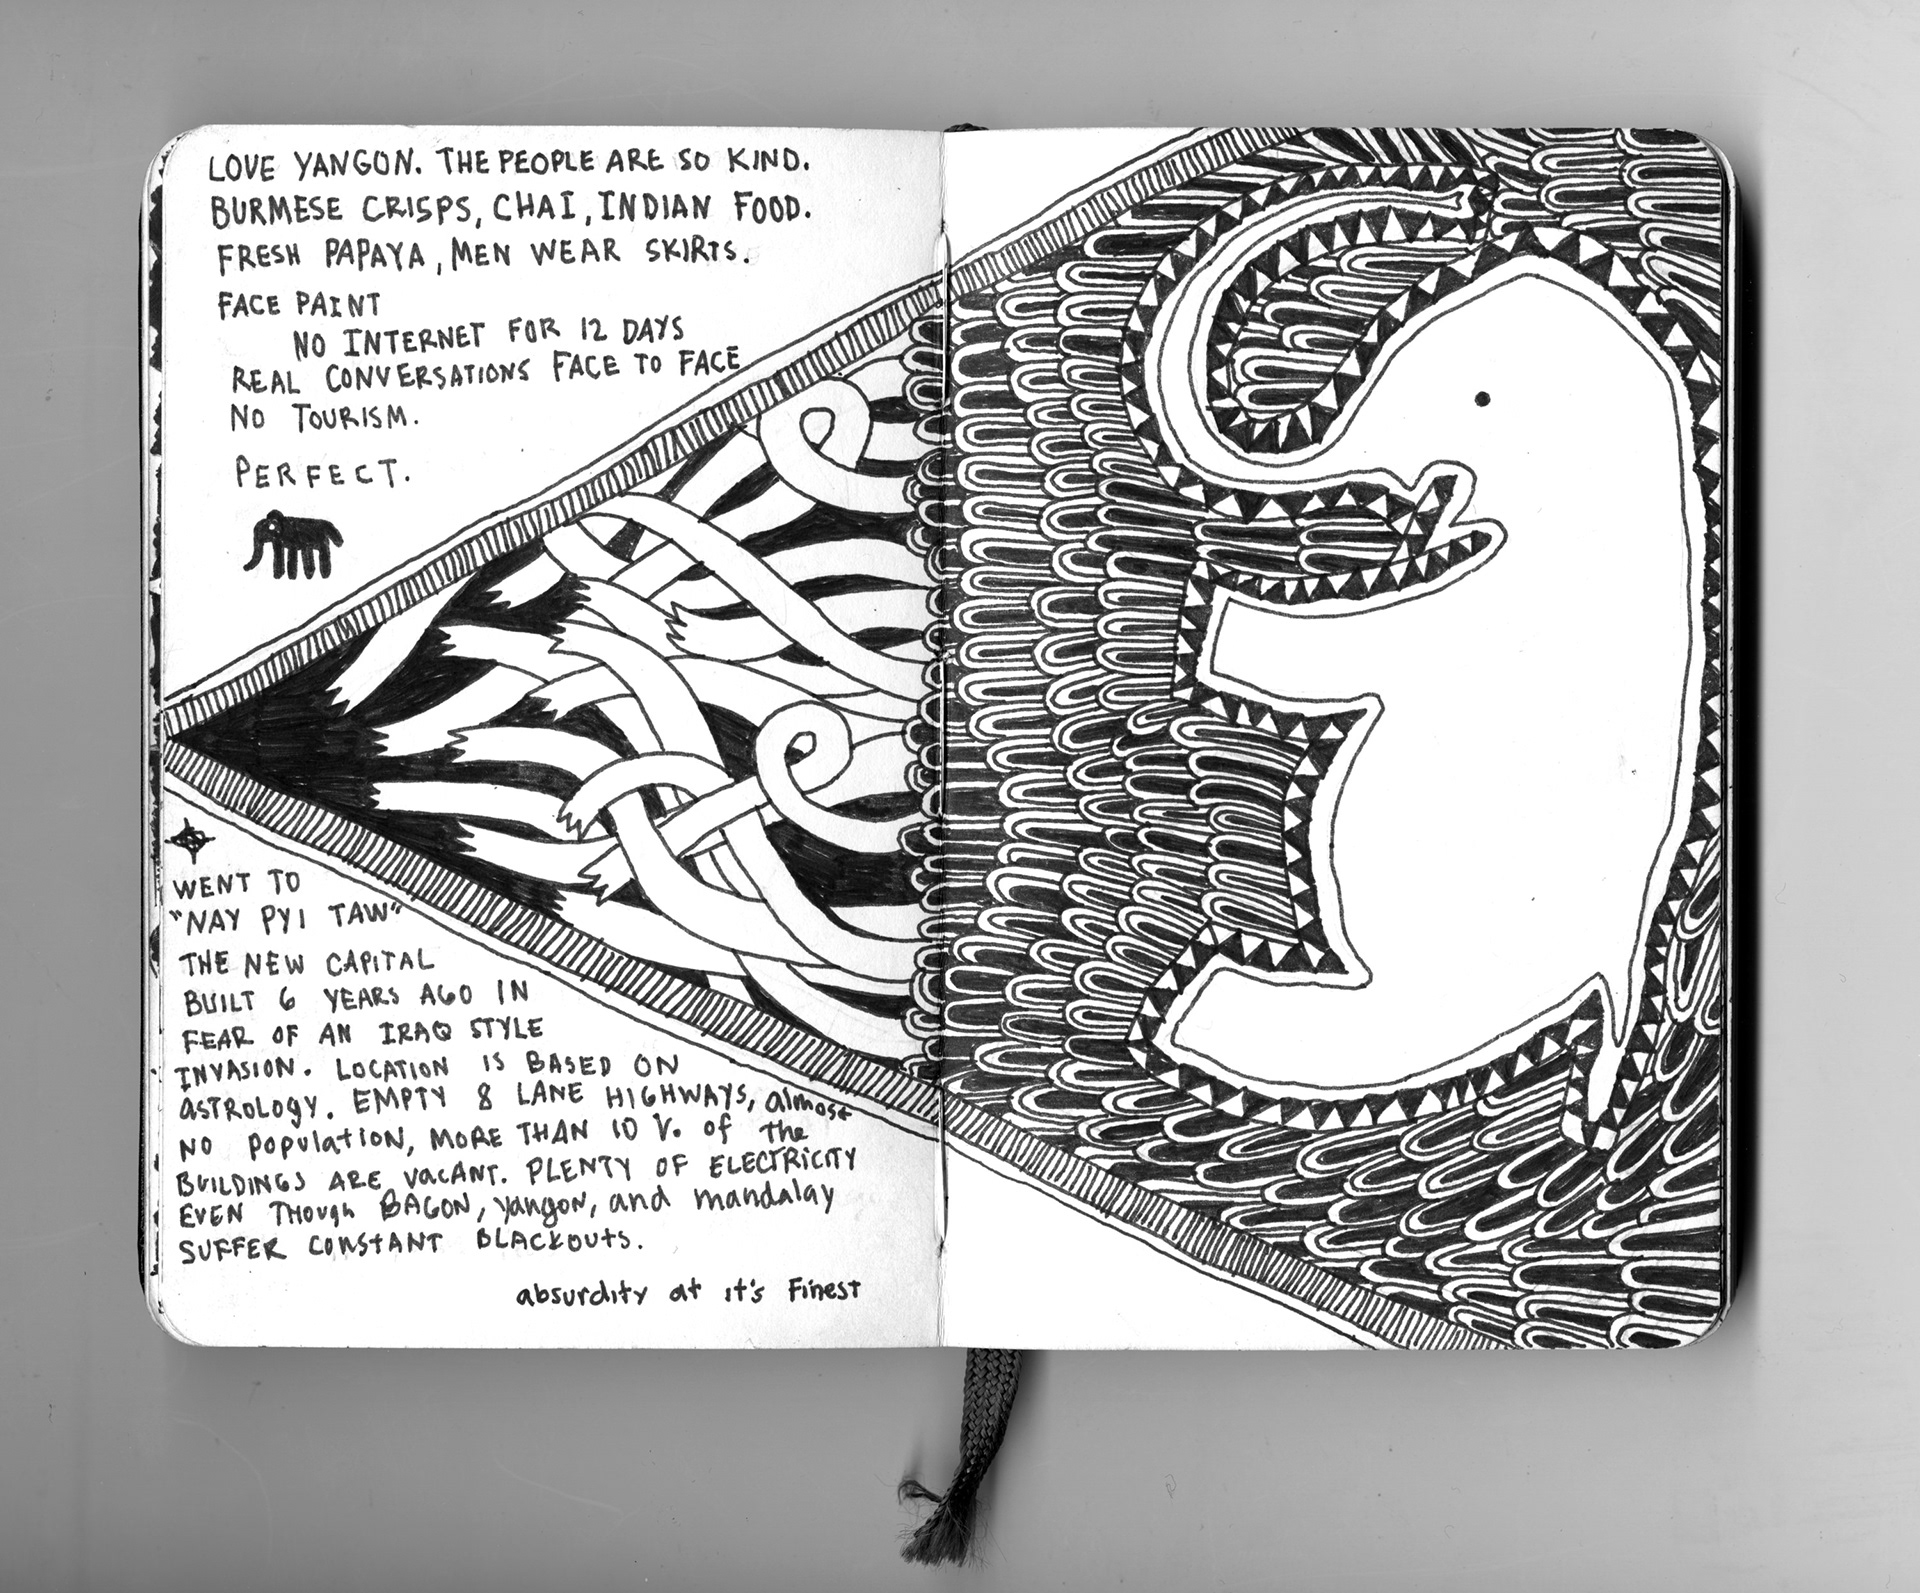 LOVE YANGON. THE PEOPLE ARE SO KIND.
BURMESE CRISPS, CHAI, INDIAN FOOD.
FRESH PAPAYA, MEN WEAR SKIRTS.
FACE PAINT
NO INTERNET FOR 12 DAYS
REAL CONVERSATIONS FACE TO FACE
NO TOURISM.
PERFECT.
WENT TO
"NAY PYI TAW"
THE NEW CAPITAL
BUILT 6 YEARS AGO IN
FEAR OF AN IRAQ STYLE
INVASION. LOCATION IS BASED ON
ASTROLOGY. EMPTY 8 LANE HIGHWAYS, almost
NO POPULATION, MORE THAN 10 %. of the
BUILDINGS ARE VACANT. PLENTY OF ELECTRICITY
EVEN THOUGH BAGON, yangon, and mandalay
SUFFER CONSTANT BLACKOUTS.
absurdity at it's Finest